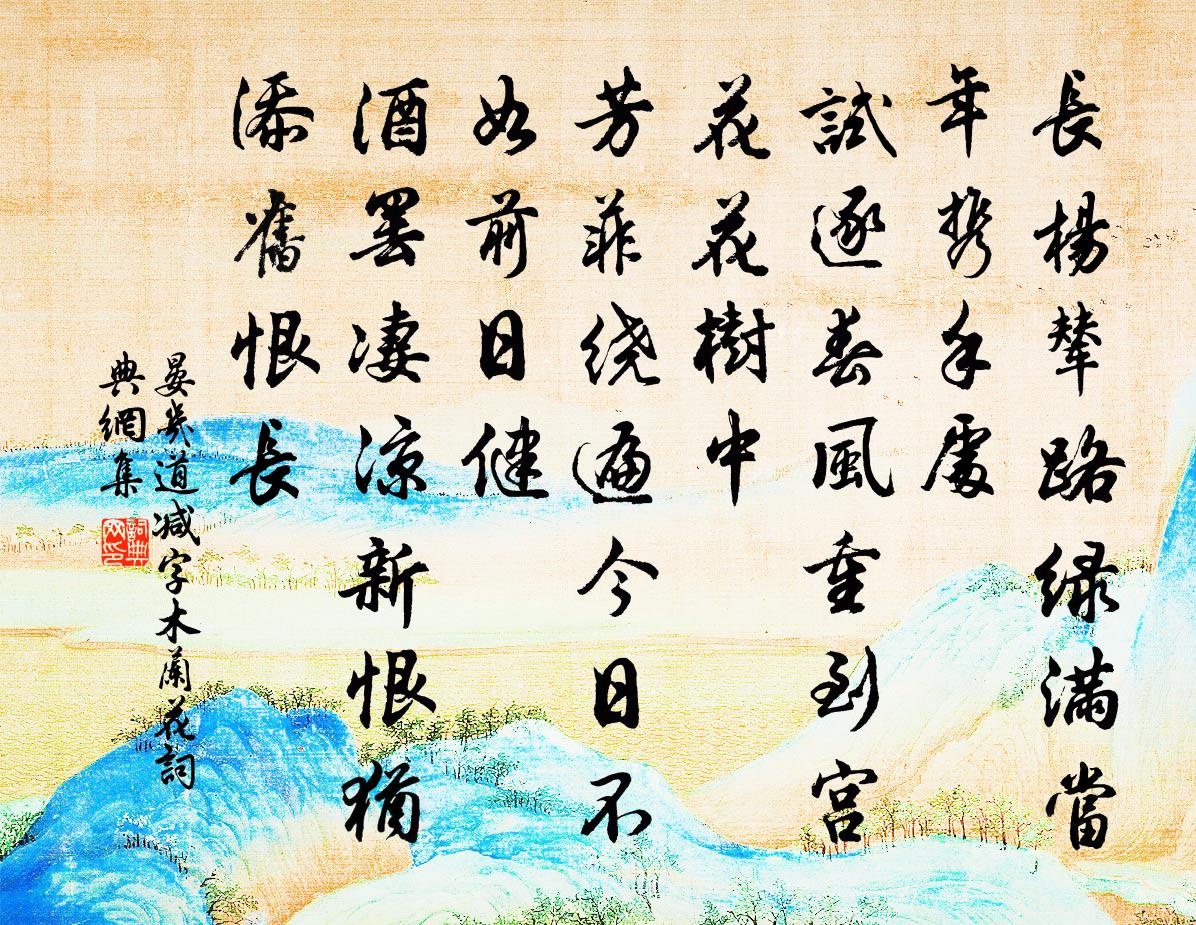 長楊輦路綠滿當
年携手處
試逐春風重到宮
花花樹中
芳菲绕遍今日不
如前日健
酒罢凄凉新恨猶
添舊恨長
晏幾道減字木蘭花詞
典網集
詞典网印